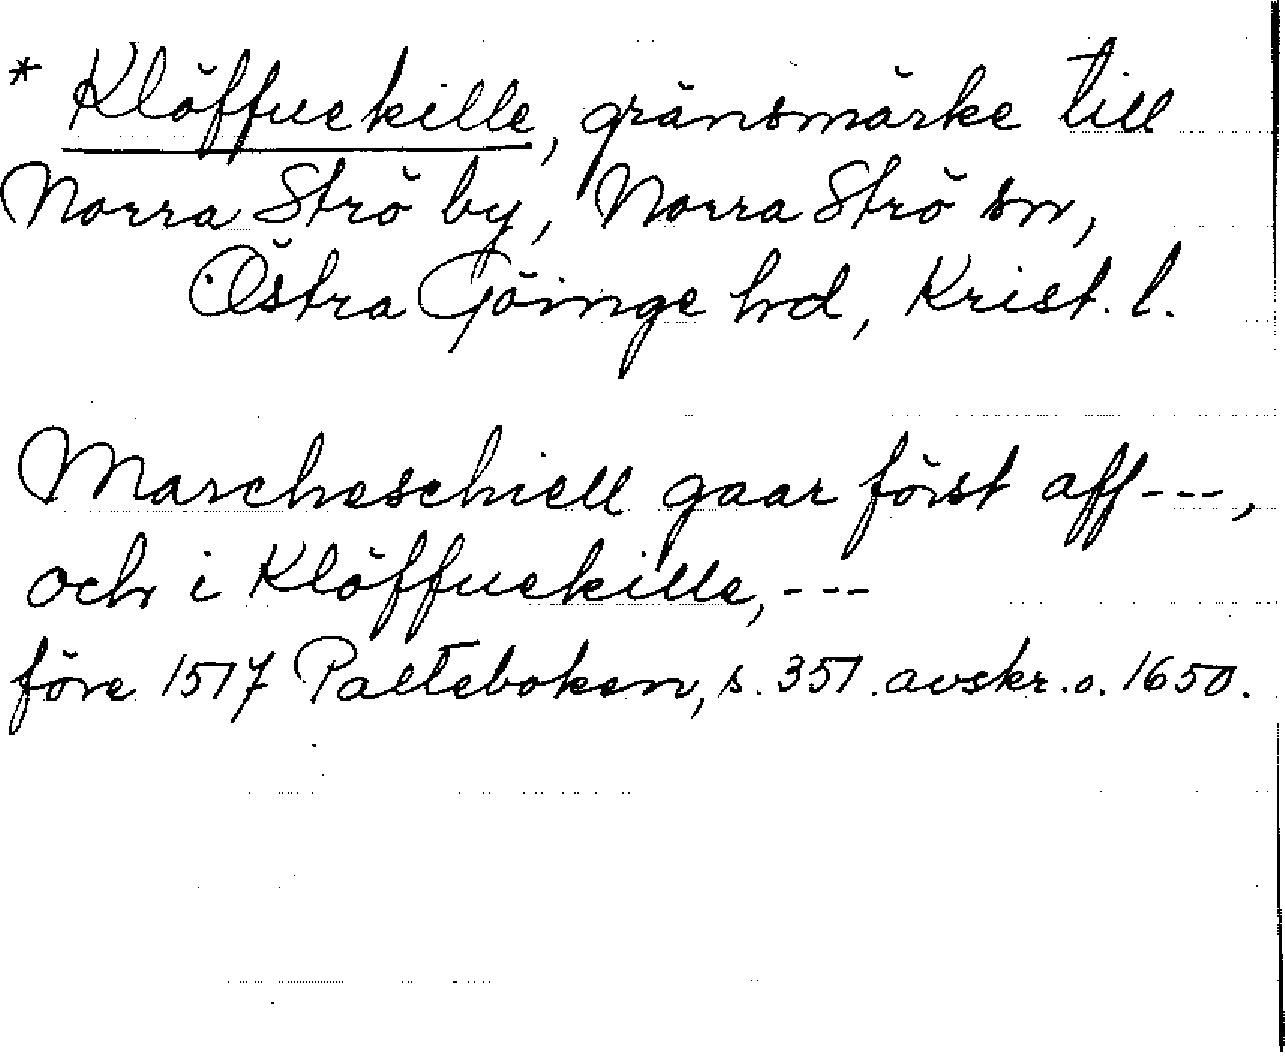 * Klöffuekille, gränsmärke till
Norra Strö by, Norra Strö sn,
Östra Göinge hd, Krist. l.
Marcheschiell gaar först aff---,
och i Klöffuekille,---
före 1517 Palteboken, s. 351. avskr. o. 1650.